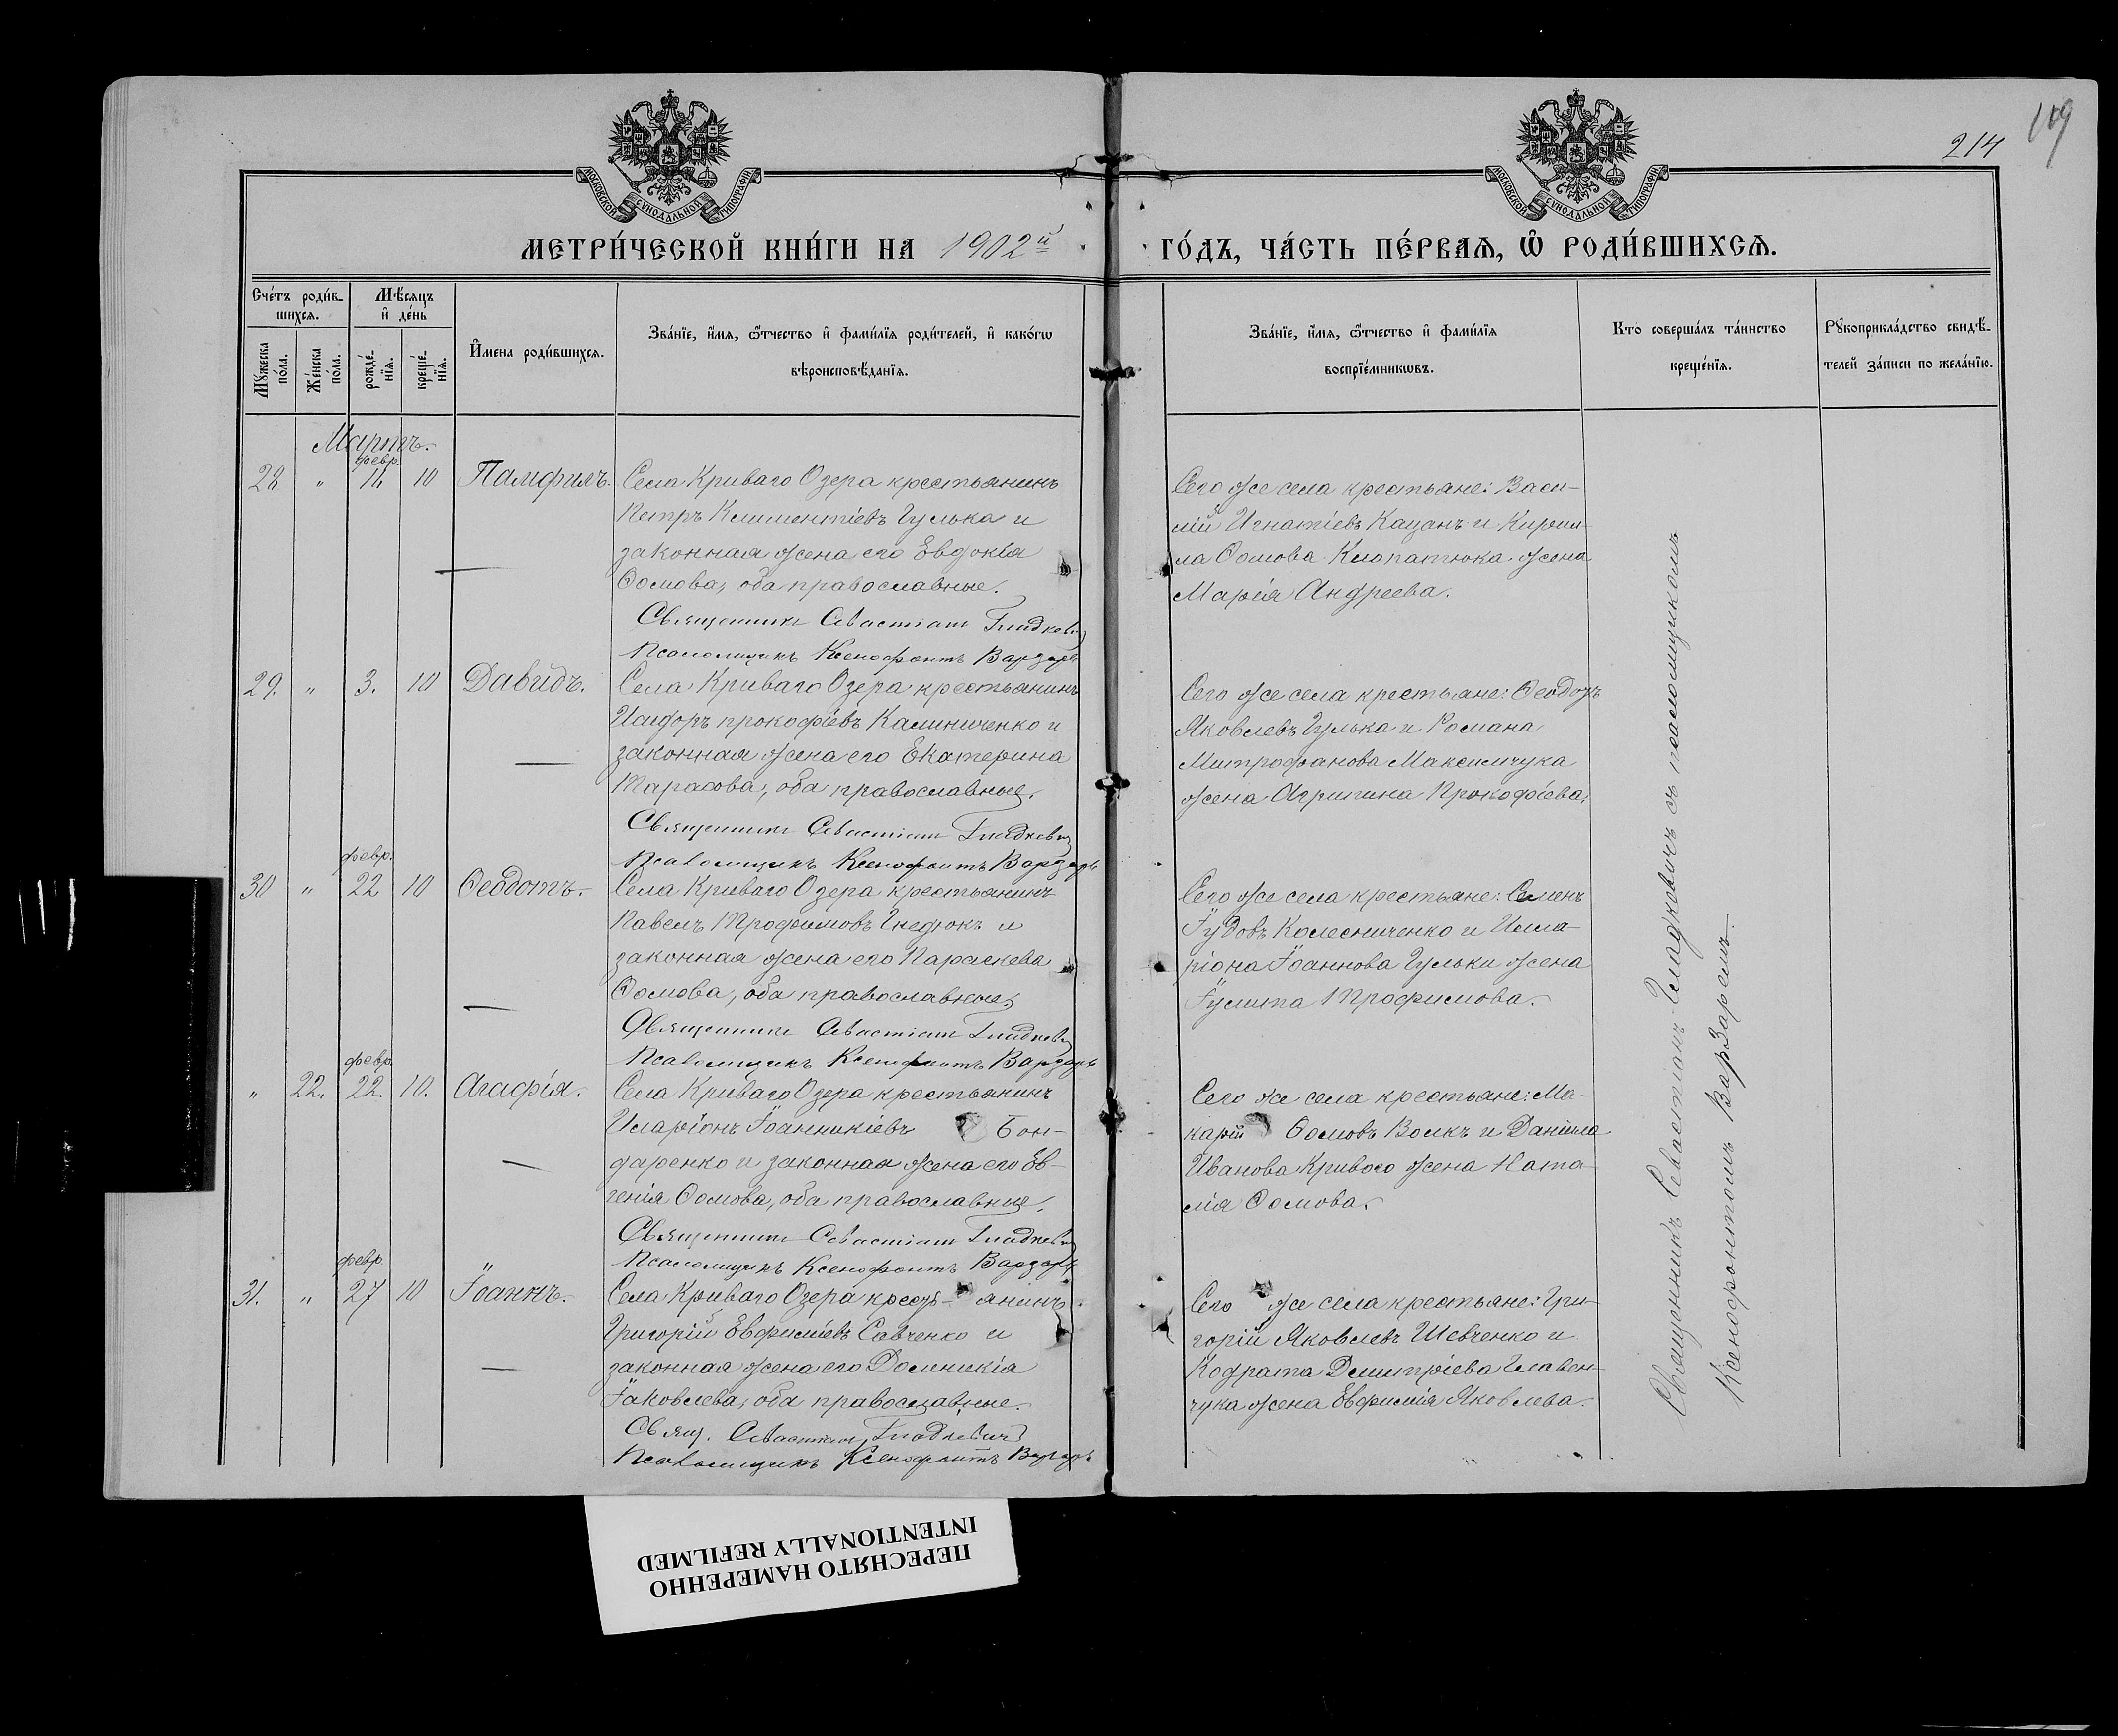 109
214
МОСКОВСКОЙ СУНОДАЛЬНОЙ ТИПОГРАФІИ
МОСКОВСКОЙ СУНОДАЛЬНОЙ ТИПОГРАФІИ
МЕТРИ́ЧЕСКОЙ КНИ́ГИ НА 1902й ГО́ДЪ, ЧА́СТЬ ПЕ́РВАЯ, Ѿ РОДИ́ВШИХСЯ.
Сче́тъ роди́в-
шихся.
Мѣ́сяцъ
и де́нь
Му́жеска по́ла.
Же́нска по́ла.
рожде́-
нїя.
креще́-
нїя.
И҆мена роди́вшихся.
Зва́нїе, и҆́мя, ѻ҆́тчество и҆ фами́лїя роди́телей, и҆ како́гѡ
вѣроисповѣ́данїя.
Зва́нїе, и҆́мя, ѻ҆́тчество и҆ фами́лїя
воспрїе́мникѡвъ.
Кто соверша́лъ та́инство
креще́нїя.
Рукоприкла́дство свидѣ́-
телей за́писи по жела́нїю.
Мартъ.
февр.
28 " 11. 10 Памфилъ.
Села Криваго Озера крестьянинъ
Петръ Климентіевъ Гулька и
законная жена его Евдокія
Ѳомова, оба православные.
Священникъ Севастіанъ Гладкевич
Псаломщикъ Ксенофонтъ Варзарь
Сего же села крестьяне: Васи-
лій Игнатіевъ Кацанъ и Кирил-
ла Ѳомова Клопатюка жена
Марія Андреева.
29. " 3. 10 Давидъ.
Села Криваго Озера крестьянинъ
Исидоръ Прокофіевъ Калиниченко и
законная жена его Екатерина
Тарасова, оба православные.
Священникъ Севастіанъ Гладкевич
Псаломщикъ Ксенофонтъ Варзарь
Сего же села крестьяне: Ѳеодоръ
Яковлевъ Гулька и Романа
Митрофанова Максимчука
жена Агрипина Прокофіева.
февр.
30 " 22 10 Ѳеодотъ.
Села Криваго Озера крестьянинъ
Павелъ Трофимовъ Гнедюкъ и
законная жена его Параскева
Ѳомова, оба православные.
Священникъ Севастіанъ Гладкевич
Псаломщикъ Ксенофонтъ Варзарь
Сего же села крестьяне: Семенъ
Іудовъ Колесниченко и Илла-
ріона Іоаннова Гульки жена
Іулита Трофимова.
февр.
" 22. 22. 10. Агафія.
Села Криваго Озера крестьянинъ
Иларіонъ Іоанникіевъ Бон-
даренко и законная жена его Ев-
генія Ѳомова, оба православные.
Священникъ Севастіанъ Гладкевич
Псаломщикъ Ксенофонтъ Варзарь
Сего же села крестьяне: Ма-
карій Ѳомовъ Волкъ и Даніила
Иванова Кривого жена Ната-
лія Ѳомова.
февр.
31. " 27 10 Іоаннъ.
Села Криваго Озера кресть- анинъ
Григорій Евфиміевъ Савченко и
законная жена его Домникія
Іаковлева, оба православные.
Свящ. Севастіанъ Гладкевич
Псаломщикъ Ксенофонтъ Варзарь
Сего же села крестьяне: Гри-
горій Яковлевъ Шевченко и
Кодрата Димитріева Главен-
чука жена Евфимія Яковлева.
Священникъ Севастіанъ Гладкевичъ съ псаломщикомъ
Ксенофонтомъ Варзаремъ.
ПЕРЕСНЯТО НАМЕРЕННО
INTENTIONALLY REFILMED